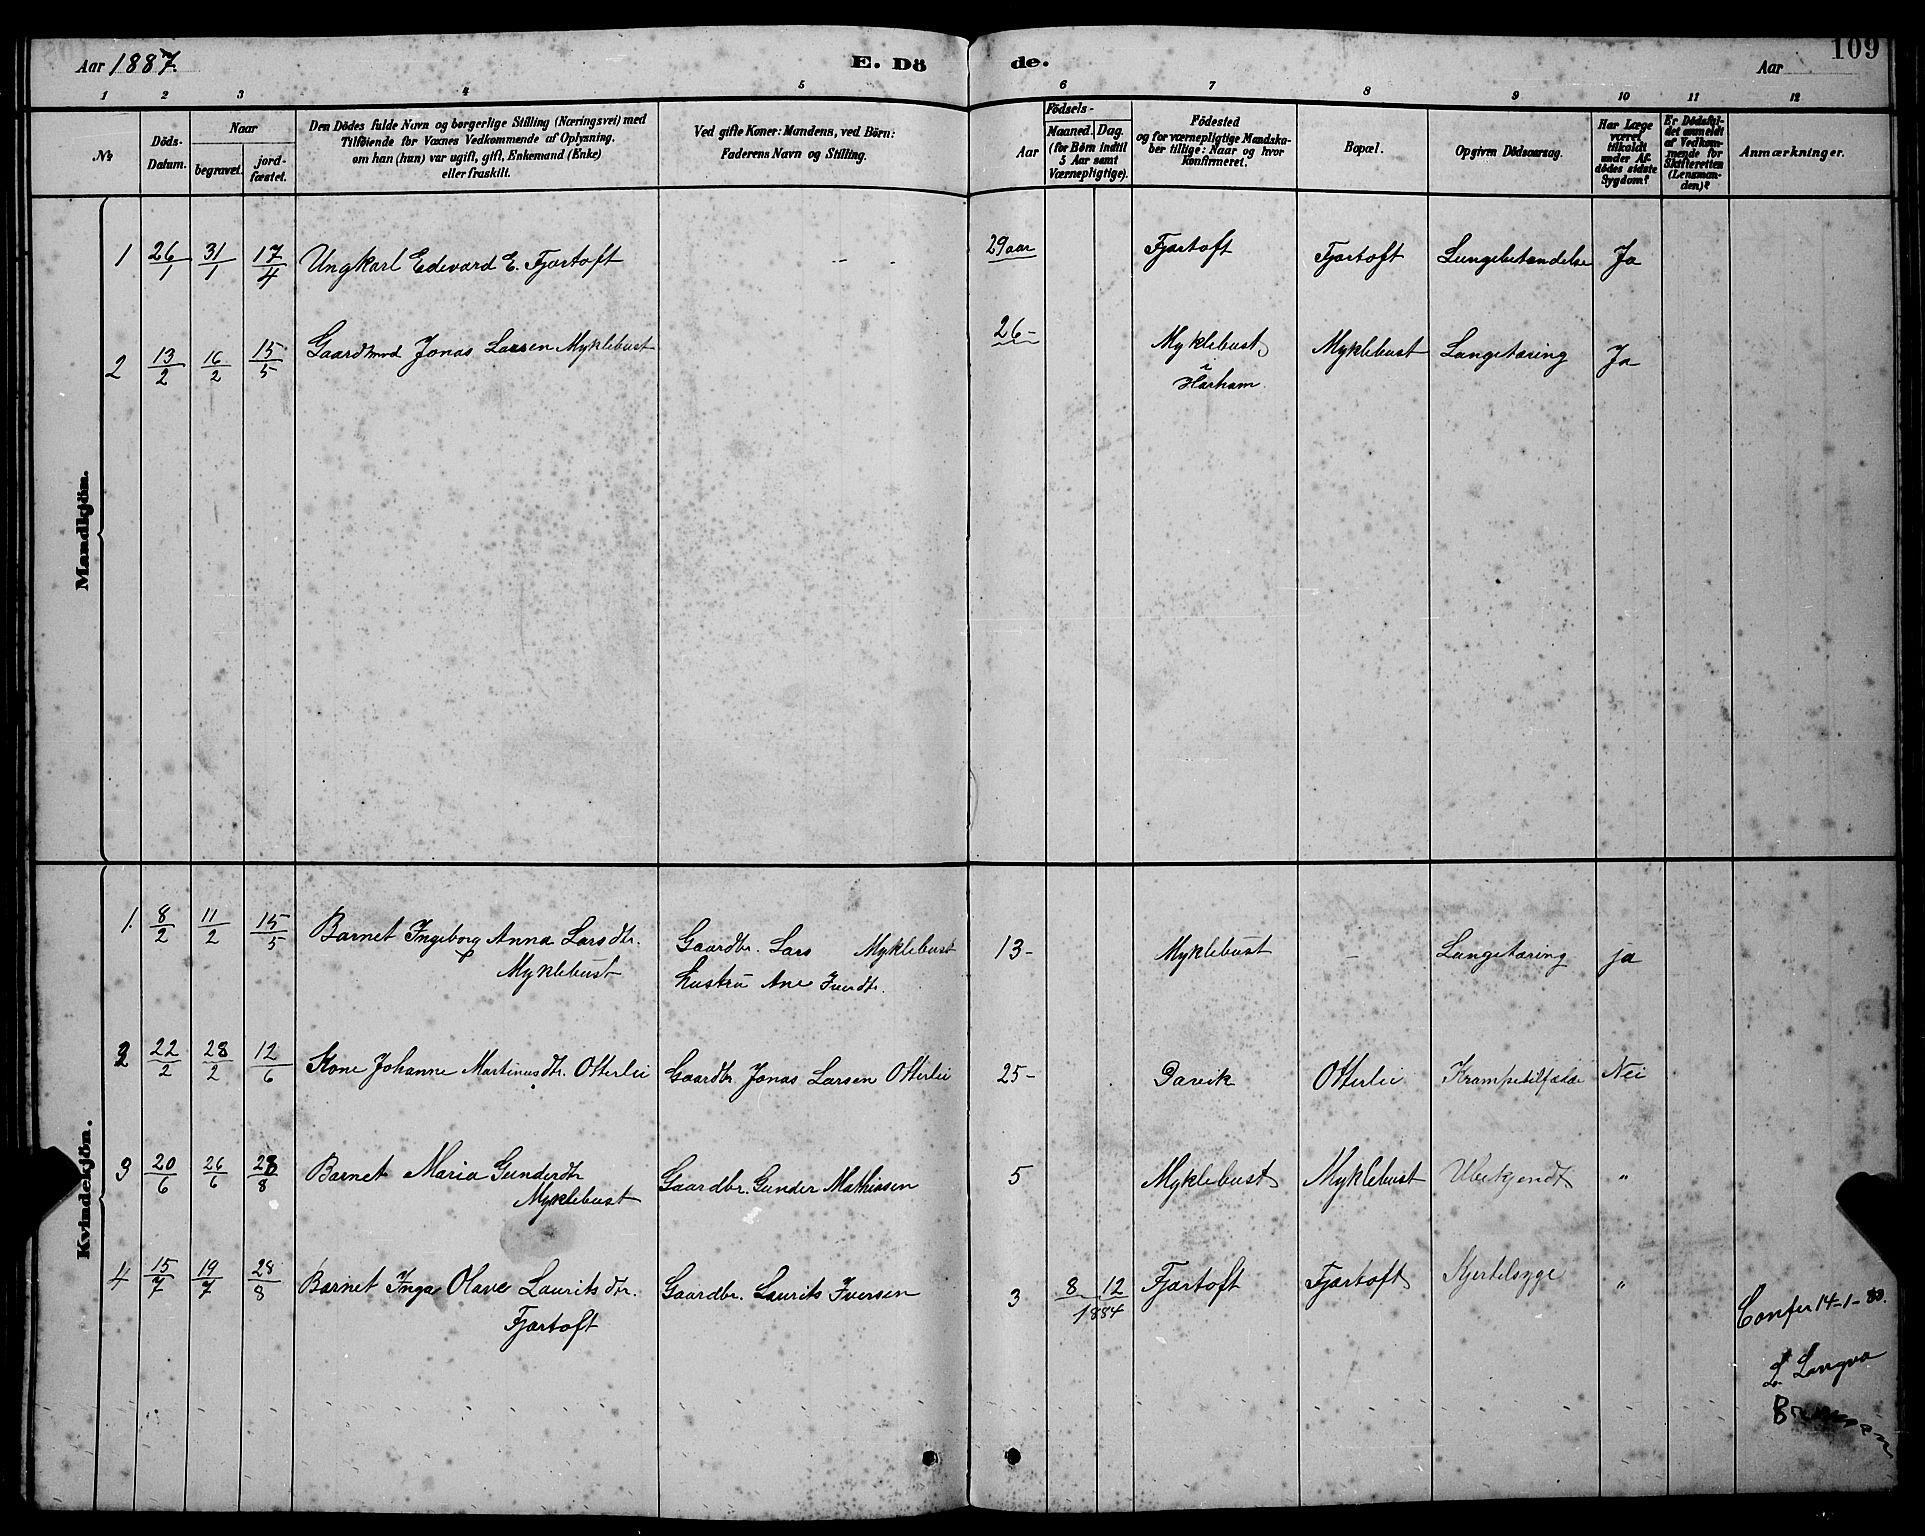 109
Aar 1887.
E. Dö
de.
Aar
1 2 3 4 5 6 7 8 9 10 11 12
№
Döds-
Datum.
Naar
begravet.
jord-
fæstet.
Den Dödes fulde Navn og borgerlige Stilling (Næringsvei) med
Tilföiende for Voxnes Vedkommende af Oplysning.
om han (hun) var ugift, gift, Enkemand (Enke)
eller fraskilt.
Ved gifte Koner: Mandens, ved Börn:
Faderens Navn og Stilling.
Födsels-
Aar
Maaned. Dag.
(for Börn indtil
5 Aar samt
Værnepligtige).
Födested
og for værnepligtige Mandska-
ber tillige: Naar og hvor
Konfirmeret.
Bopæl.
Opgiven Dödsaarsag.
Har Læge
været
tilkaldt
under Af-
dödes sidste
Sygdom?
Er Dödsfal-
det anmeldt
af Vedkom-
mende for
Skifteretten
(Lensman-
den)?
Anmærkninger.
Mandkjön.
1 26/1 31/1 17/4 Ungkarl Edevard E. Fjærtoft - - 29 aar Fjærtoft Fjærtoft Lungebetændelse Ja
2 13/2 16/2 15/5 Gaardmd Jonas Larsen Myklebust 26- Myklebust Myklebust Lungetæring Ja
i
Harham.
Kvindekjön.
1. 8/2 11/2 15/5 Barnet Ingeborg Anna Larsdtr. Gaardbr. Lars Myklebust 13- Myklebust - Lungetæring ja
Myklebust Hustru Ane Iverdtr.
2 22/2 28/2 12/6 Kone Johanne Martinusdtr. Otterlei Gaardbr. Jonas Larsen Otterlei 25- Davik Otterlei Krampetilfælde Nei
3 20/6 26/6 28/8 Barnet Maria Gunderdtr Gaardbr. Gunder Mathiasen 5 Myklebust Myklebust Ubekjendt "
Myklebust
4 15/7 19/7 28/8 Barnet Inga Olave Lauritsdtr. Gaardbr. Laurits Iversen 3 8 12 Fjærtoft Fjærtoft Kjertelsyge "
1884
Fjærtoft
Confer 14-1-88.
L. Longva